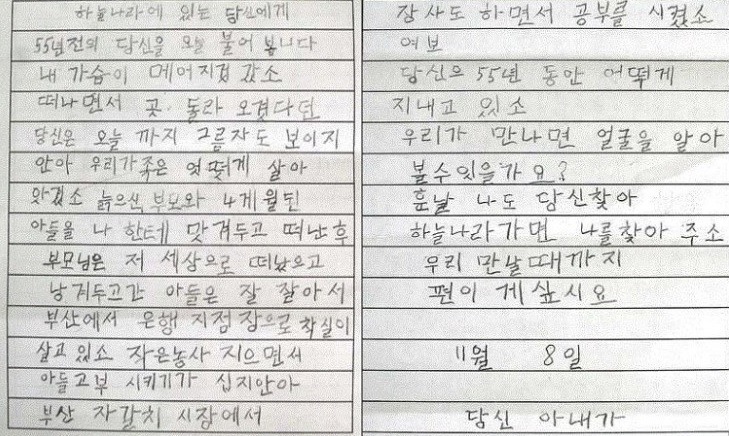 하늘나라에 있는 당신에게
55년전의 당신을 오늘 불어 봅니다
내 가슴이 메어지겁 갔소
떠나면서 곳. 돌라 오겠다던
당신은 오늘 까지 그름자도 보이지
안아 우리가족은 엇떻게 살아
왔겠소 늙으신 부모와 4개월된
아들을 나 한테 맞겨두고 떠난후
부모님은 저 세상으로 떠났으고
낭겨두고간 아들은 잘 잘아서
부산에서 은행 지점장으로 착실이
살고 있소 작은농사 지으면서
아들고부 시키기가 십지안아
부산 자갈치 시장에서
장사도 하면서 공부를 시켰소
여보
당신으 55년 동안 어떻게
지내고 있소
우리가 만나면 얼굴을 알아
볼수있을가요?
훗날 나도 당신찾아
하늘나라가면 나를찾아 주소
우리 만날때까지
편이 게싶시요
11월 8일
당신 아내가